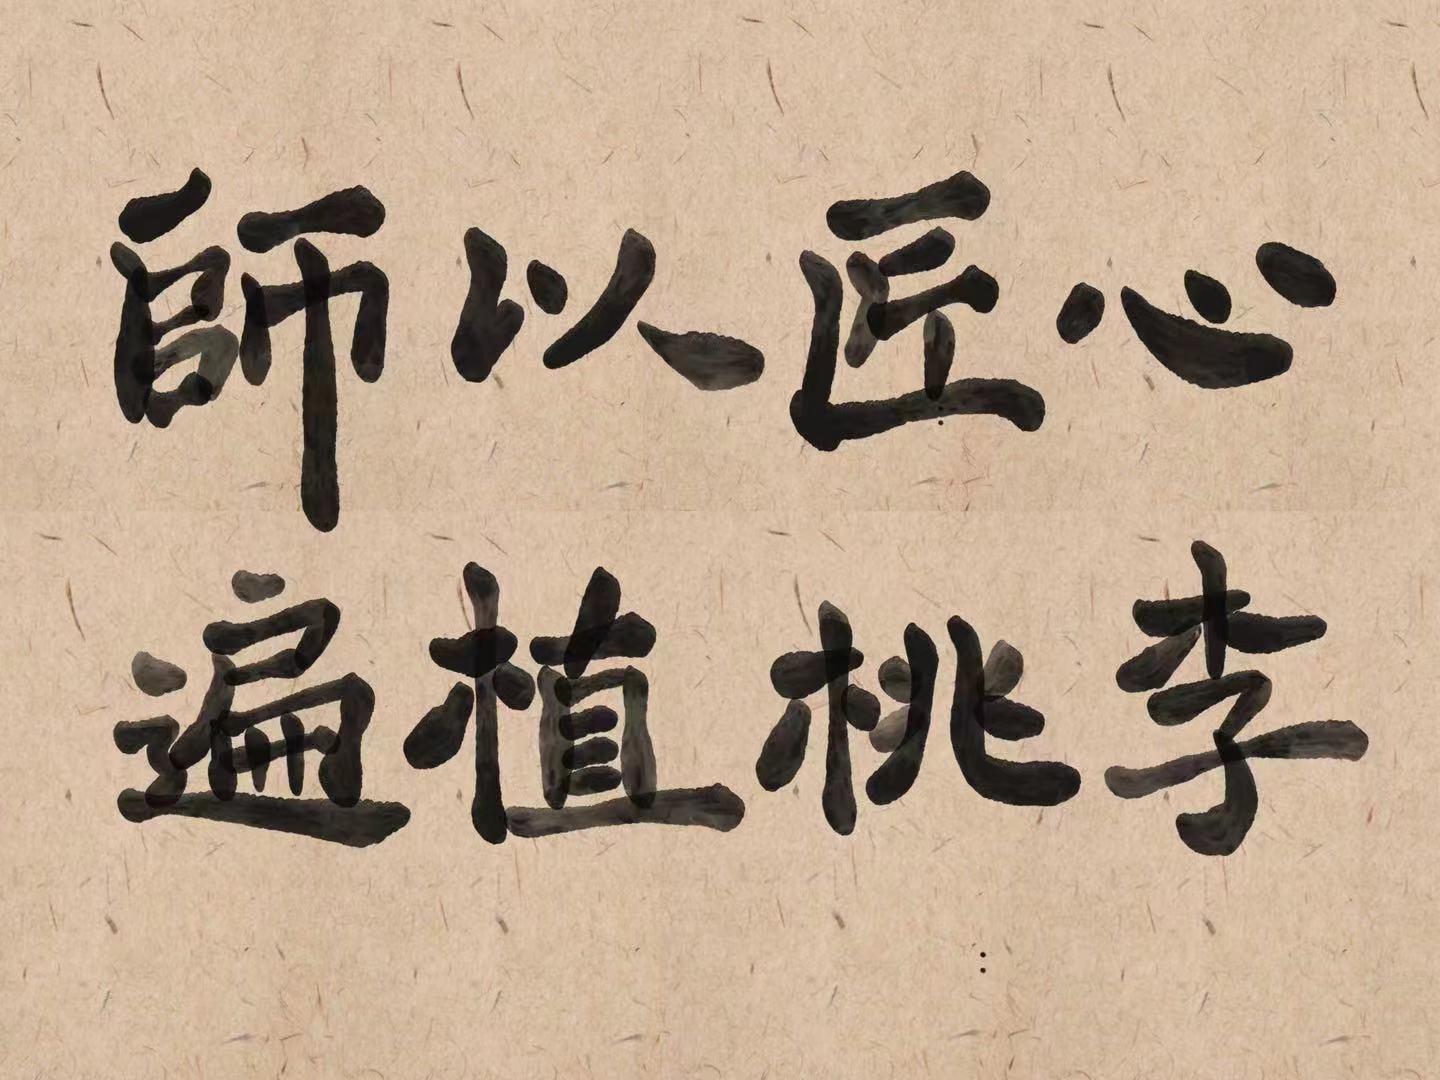 師以匠心
遍植桃李